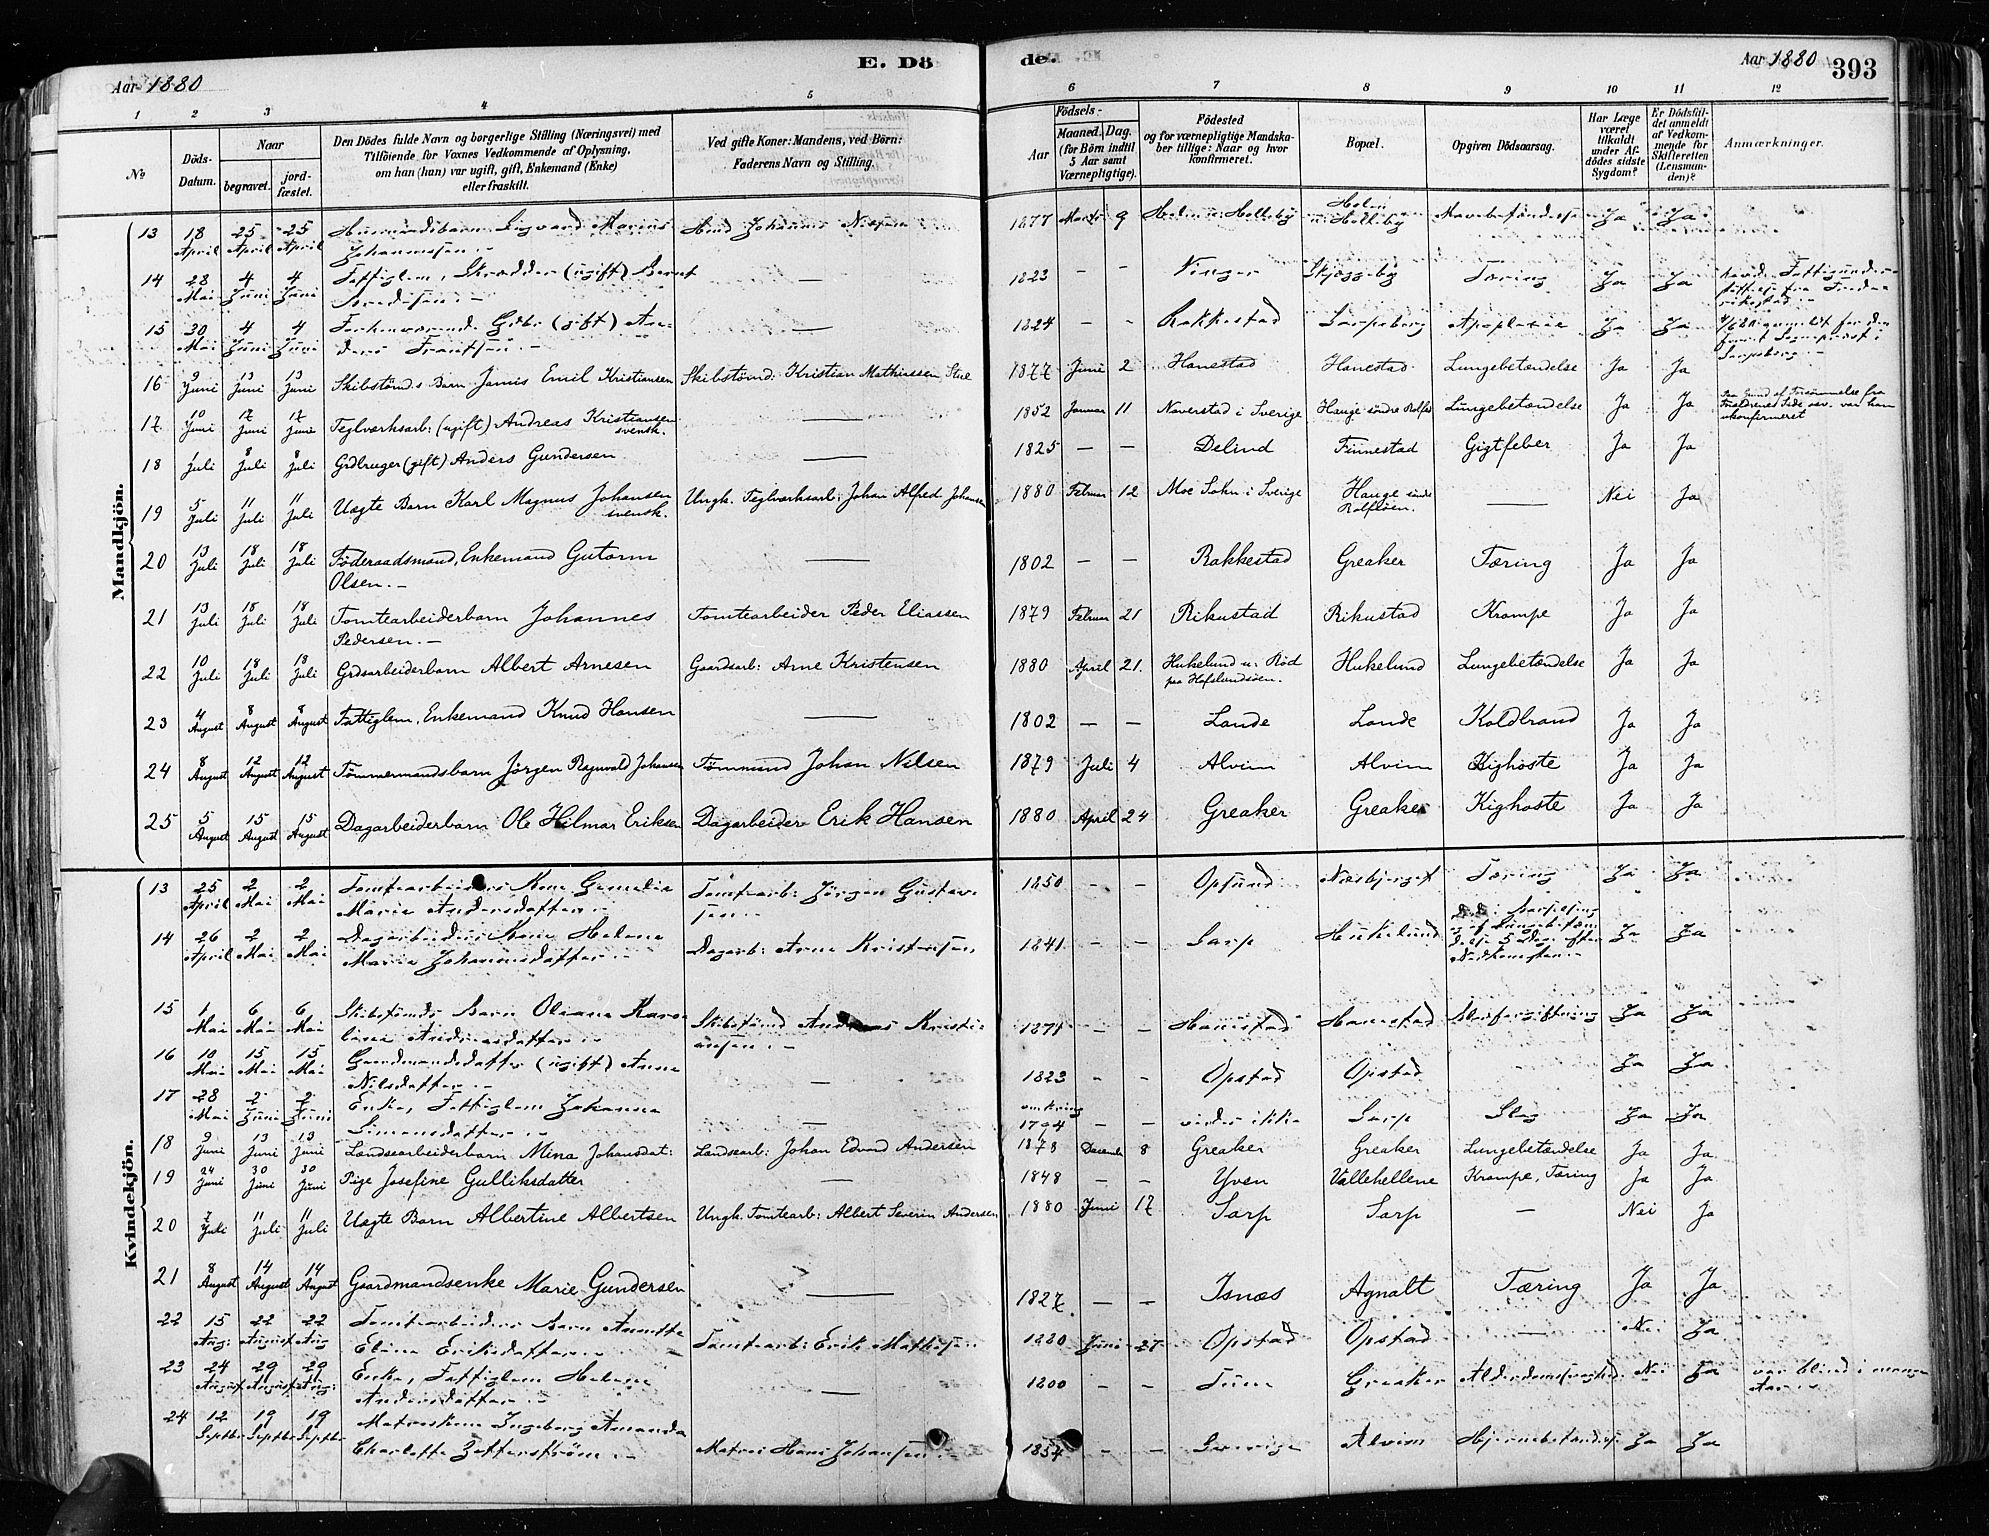 Aar 1880
E. Dö
de.
Aar 1880
393
1 2 3 4 5 6 7 8 9 10 11 12
No
Döds-Datum.
Naar
begravet.
jordfæstet.
Den Dödes fulde Navn og borgerlige Stilling (Næringsvei) med
Tilföiende for Voxnes Vedkommende af Oplysning,
om han (hun) var ugift, gift, Enkemand (Enke)
eller fraskilt.
Ved gifte Koner: Mandens, ved Börn:
Faderens Navn og Stilling.
Födsels-
Aar
Maaned. Dag.
(for Börn indtil
5 Aar samt
Værnepligtige).
Födested
og for værnepligtige Mandska-
ber tillige: Naar og hvor
konfirmeret.
Bopæl.
Opgiven Dödsaarsag.
Har Læge
været
tilkaldt
under Af-
dödes sidste
Sygdom?
Er Dödsfal-
det anmeldt
af Vedkom-
mende for
Skifteretten
(Lensman-
den)?
Anmærkninger.
Mandkjön.
13 18 April 25 April 25 April Sigvard Marius Johannessen Johannes Nilsen 1877 Marts 9 Holleby Holleby Ja Ja
14 28 Mai 4 Juni 4 Juni Fattiglem, Skrædder (ugift) Bernt — 1823 — — Vinger Skjeggeby Tæring Ja Ja
15 30 Mai 4 Juni 4 Juni (gift) Anders Frantsen — 1824 — — Rakkestad Sarpsborg Ja Ja
16 9 Juni 13 Juni 13 Juni Skibstømds Barn Janis Emil Kristiansen Skibstømd: Kristian Mathiassen Stue 1877 Juni 2 Hanestad Hanestad Lungebetændelse Ja Ja
17 10 Juni 17 Juni 17 Juni Teglværksarb: (ugift) Andreas Kristiansen svensk. — 1852 Januar 11 Naverstad i Sverige Hauge søndre Rolfsø Lungebetændelse Ja Ja Paa Grund af Forsømmelse fra Forældrenes Side var han ukonfirmeret
18 1 Juli 8 Juli 8 Juli Grdbruger (gift) Anders Gundersen — 1825 — — Delind Finnestad Gigtfeber Ja Ja
19 5 Juli 11 Juli 11 Juli Uægte Barn Karl Magnus Johansen svensk. Ungk. Teglværksarb: Johan Alfred Johansen 1880 Februar 12 Moe Sokn i Sverige Hauge søndre Rolfsøen. — Nei Ja
20 13 Juli 18 Juli 18 Juli Føderaadsmand, Enkemand Gutorm Olsen.- — 1802 — — Rakkestad Greaker Tæring Ja Ja
21 13 Juli 18 Juli 18 Juli Tomtearbeiderbarn Johannes Pedersen.- Tomtearbeider Peder Eliassen 1879 Februar 21 Rikustad Rikustad Krampe Ja Ja
22 10 Juli 18 Juli 18 Juli Grdsarbeiderbarn Albert Arnesen Gaardsarb: Arne Kristensen 1880 April 21. Hukelund u: Rød paa Hafslundsøen. Hukelund Lungebetændelse Ja Ja
23 4 August 8 August 8 August Fattiglem, Enkemand Knud Hansen — 1802 — — Lande Lande Koldbrand Ja Ja
24 8 August 12 August 12 August Tømmermandsbarn Jörgen Ragnvald Johansen Tømmmd Johan Nilsen 1879 Juli 4 Alvim Alvim Kighoste Ja Ja
25 5 August 15 August 15 August Dagarbeiderbarn Ole Hilmar Eriksen Dagarbeider Erik Hansen 1880 April 24 Greaker Greaker Kighoste Ja Ja
Kvindekjön.
13 25 April 2 Mai 2 Mai Tomtearbeiders Kone Marie Andersdatter.- Tomtearb: Jörgen Gustavsen.- 1850 — — Opsund Tæring Ja Ja
14 26 April 2 Mai 2 Mai Dagarbeiders Kone Helene Marie Johannesdatter.- Dagarb: Arne Kristensen 1841 — — Sarp Hukelund Ja Ja
15 1 Mai 6 Mai 6 Mai Skibstømds Barn Oliane Karoline Andreasdatter.- Skibstømd Andreas Kristiansen.- — — Hanestad Hanestad Ja Ja
16 10 Mai 15 Mai 15 Mai Gaardmandsdatter (ugift) Anne Nilsdatter.- — 1823 — — Opstad Opstad Ja Ja
17 28 Mai 2 Juni 2 Juni Enke, Fattiglem Johanne Simensdatter.- — omkring 1794 — — vides ikke Sarp Slag Ja Ja
18 9 Juni 13 Juni 13 Juni Landsarbeiderbarn Mina Johansdat: Landsearb: Johan Edvard Andersen 1878 December 8 Greaker Greaker Lungebetændelse Ja Ja
19 24 Juni 30 Juni 30 Juni Pige Josefine Gulliksdatter — 1848 — — Yven Vallehellene Krampe, Tæring Ja Ja
20 7 Juli 11 Juli 11 Juli Uægte Barn Albertine Albertsen Ungk. Tomtearb: Albert Severin Andersen 1880 Juni 17 Sarp Sarp — Nei Ja
21 8 August 14 August 14 August Gaardmandsenke Marie Gundersen — 1827 — — Isnæs Agnalt Tæring Ja Ja
22 15 Aug: 22 August 22 Aug Tomtearbeiders Barn Annette Eline Eriksdatter.- Tomtearb: Erik Mathisen 1880 Juni 27 Opstad Opstad — Nei Ja
23 24 August 29 August 29 Aug: Enke, Fattiglem Helene Andersdatter.- — 1800 — — Tune Greaker Alderdomssvaghed. Nei Ja var blind i mange Aar.-
24 12 Septbr 19 Septbr 19 Septbr Matroskone Ingeborg Amanda Charlotte Zetterstrøm.- Matros Hans Johansen.- 1854 — — Sverige Alvim Hjernebetændelse Ja Ja